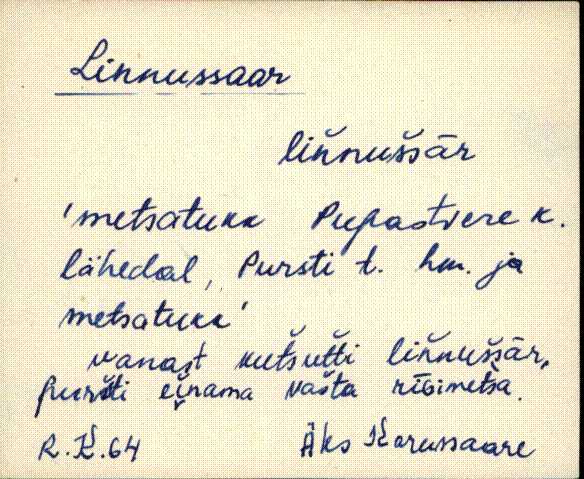 Linnussaar
liňnuššār
'metsatukk Pupastvere k.
lähedal, Pursti t. hm. ja
metsatukk'
vanast kutsutti liňnuššār,
puršti einama vašta rīgimetsa.
R.K.64 Äks Karussaare